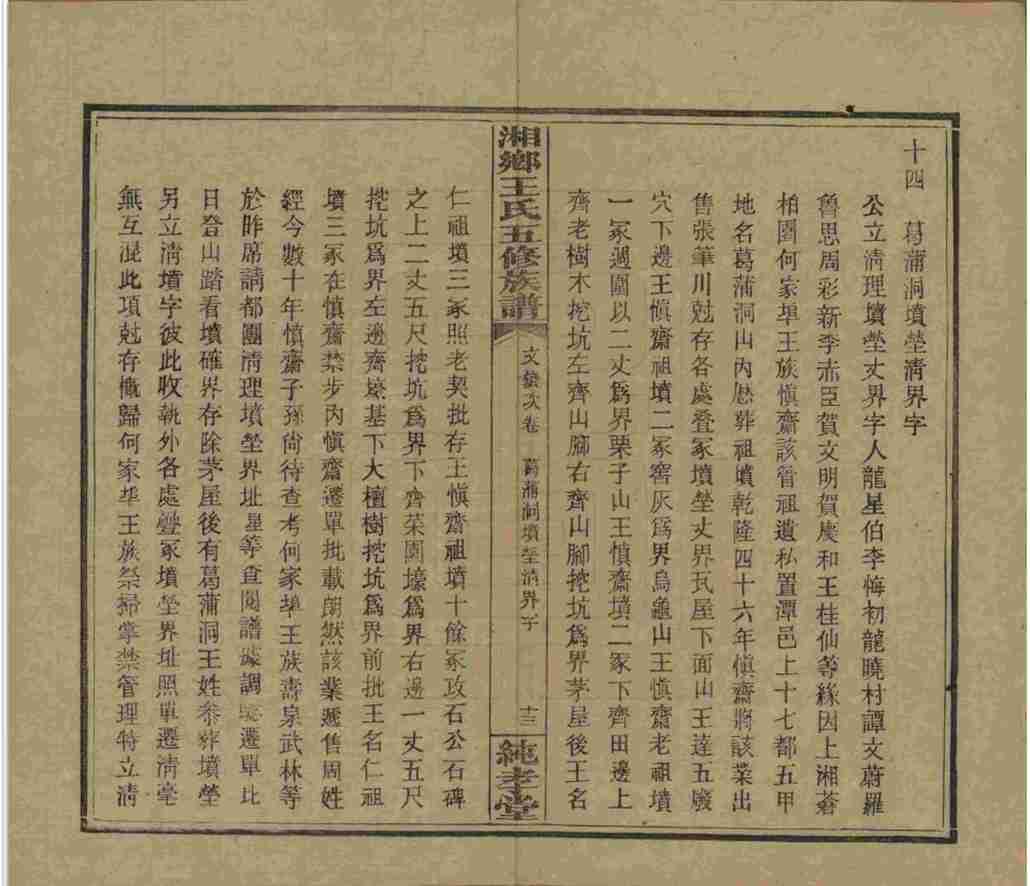 十四　葛蒲洞墳塋清界字
公立清理墳塋丈界字人龍星伯李悔初龍曉村譚文蔚羅
魯思周彩新李赤臣賀文明賀慶和王桂仙等緣因上湘蒼
柏園何家埠王族愼齋該管祖遺私置潭邑上十七都五甲
地名葛蒲洞山內厯葬祖墳乾隆四十六年愼齋將該業出
售張筆川尅存各處叠冢墳塋丈界瓦屋下面山王達五廢
穴下邊王愼齋祖墳二冢窖灰爲界烏龜山王愼齋老祖墳
一冢週圍以二丈爲界栗子山王慎齋墳二冢下齊田邊上
齊老樹木挖坑左齊山腳右齊山腳挖坑爲界茅屋後王名
湘鄉王氏五修族譜
文徵次卷　葛蒲洞墳塋清界字　十三
純孝堂
仁祖墳三冢照老契批存王愼齋祖墳十餘冢攻石公石碑
之上二丈五尺挖坑爲界下齊菜園壕爲界右邊一丈五尺
挖坑爲界左邊齊壕基下大檀樹挖坑爲界前批王名仁祖
墳三冢在慎齋禁步內愼齋遷單批載朗然該業遞售周姓
經今數十年慎齋子孫尙待查考何家埠王族壽泉武林等
於昨席請都團清理墳塋界址星等查閱譜據調遷單比
日登山踏看墳確界存除茅屋後有葛蒲洞王姓叅葬墳塋
另立清墳字彼此收執外各處疊冢墳塋界址照單遷清毫
無互混此項尅存槪歸何家埠王族祭掃掌禁管理特立清